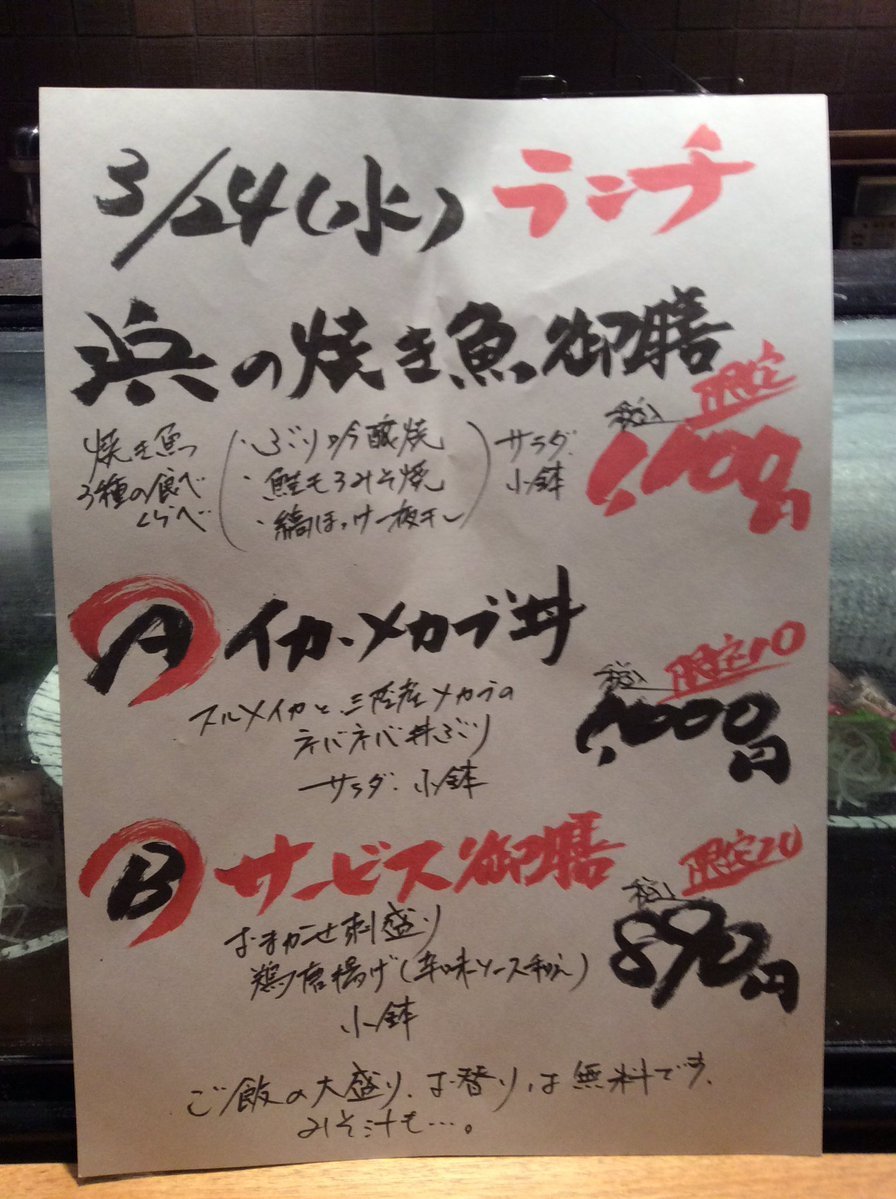 3/24(水) ランチ
浜の焼き魚御膳
限定
焼き魚
3種の食べ
くらべ
・ぶり吟醸焼
・鮭もろみそ焼
・縞ほっけ一夜干し
サラダ
小鉢
税込
1,000円
A イカ・メカブ丼
限定10
スルメイカと三陸産メカブの
ネバネバ丼ぶり
サラダ・小鉢
税込
1,000円
B サービス御膳
限定20
おまかせ刺盛り
鶏唐揚げ(辛味ソース和え)
小鉢
税込
890円
ご飯の大盛り、お替りは無料です。
みそ汁も…。